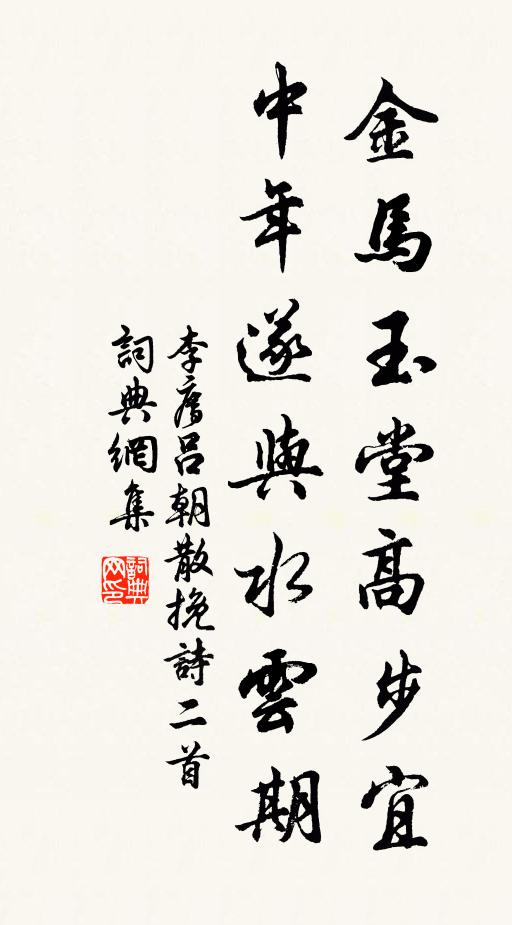 金馬玉堂高步宜
中年遂與水雲期
李廌呂朝散挽詩二首
詞典網集
詞典网印